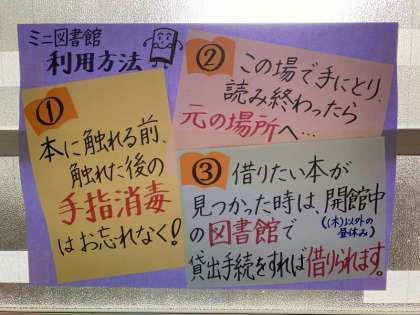 ミニ図書館
利用方法
①
本に触れる前、
触れた後の
手指消毒
はお忘れなく!
②
この場で手にとり、
読み終わったら
元の場所へ…
③
借りたい本が
見つかった時は、開館中
((木)以外の
昼休み)
の図書館で
貸出手続をすれば借りられます。